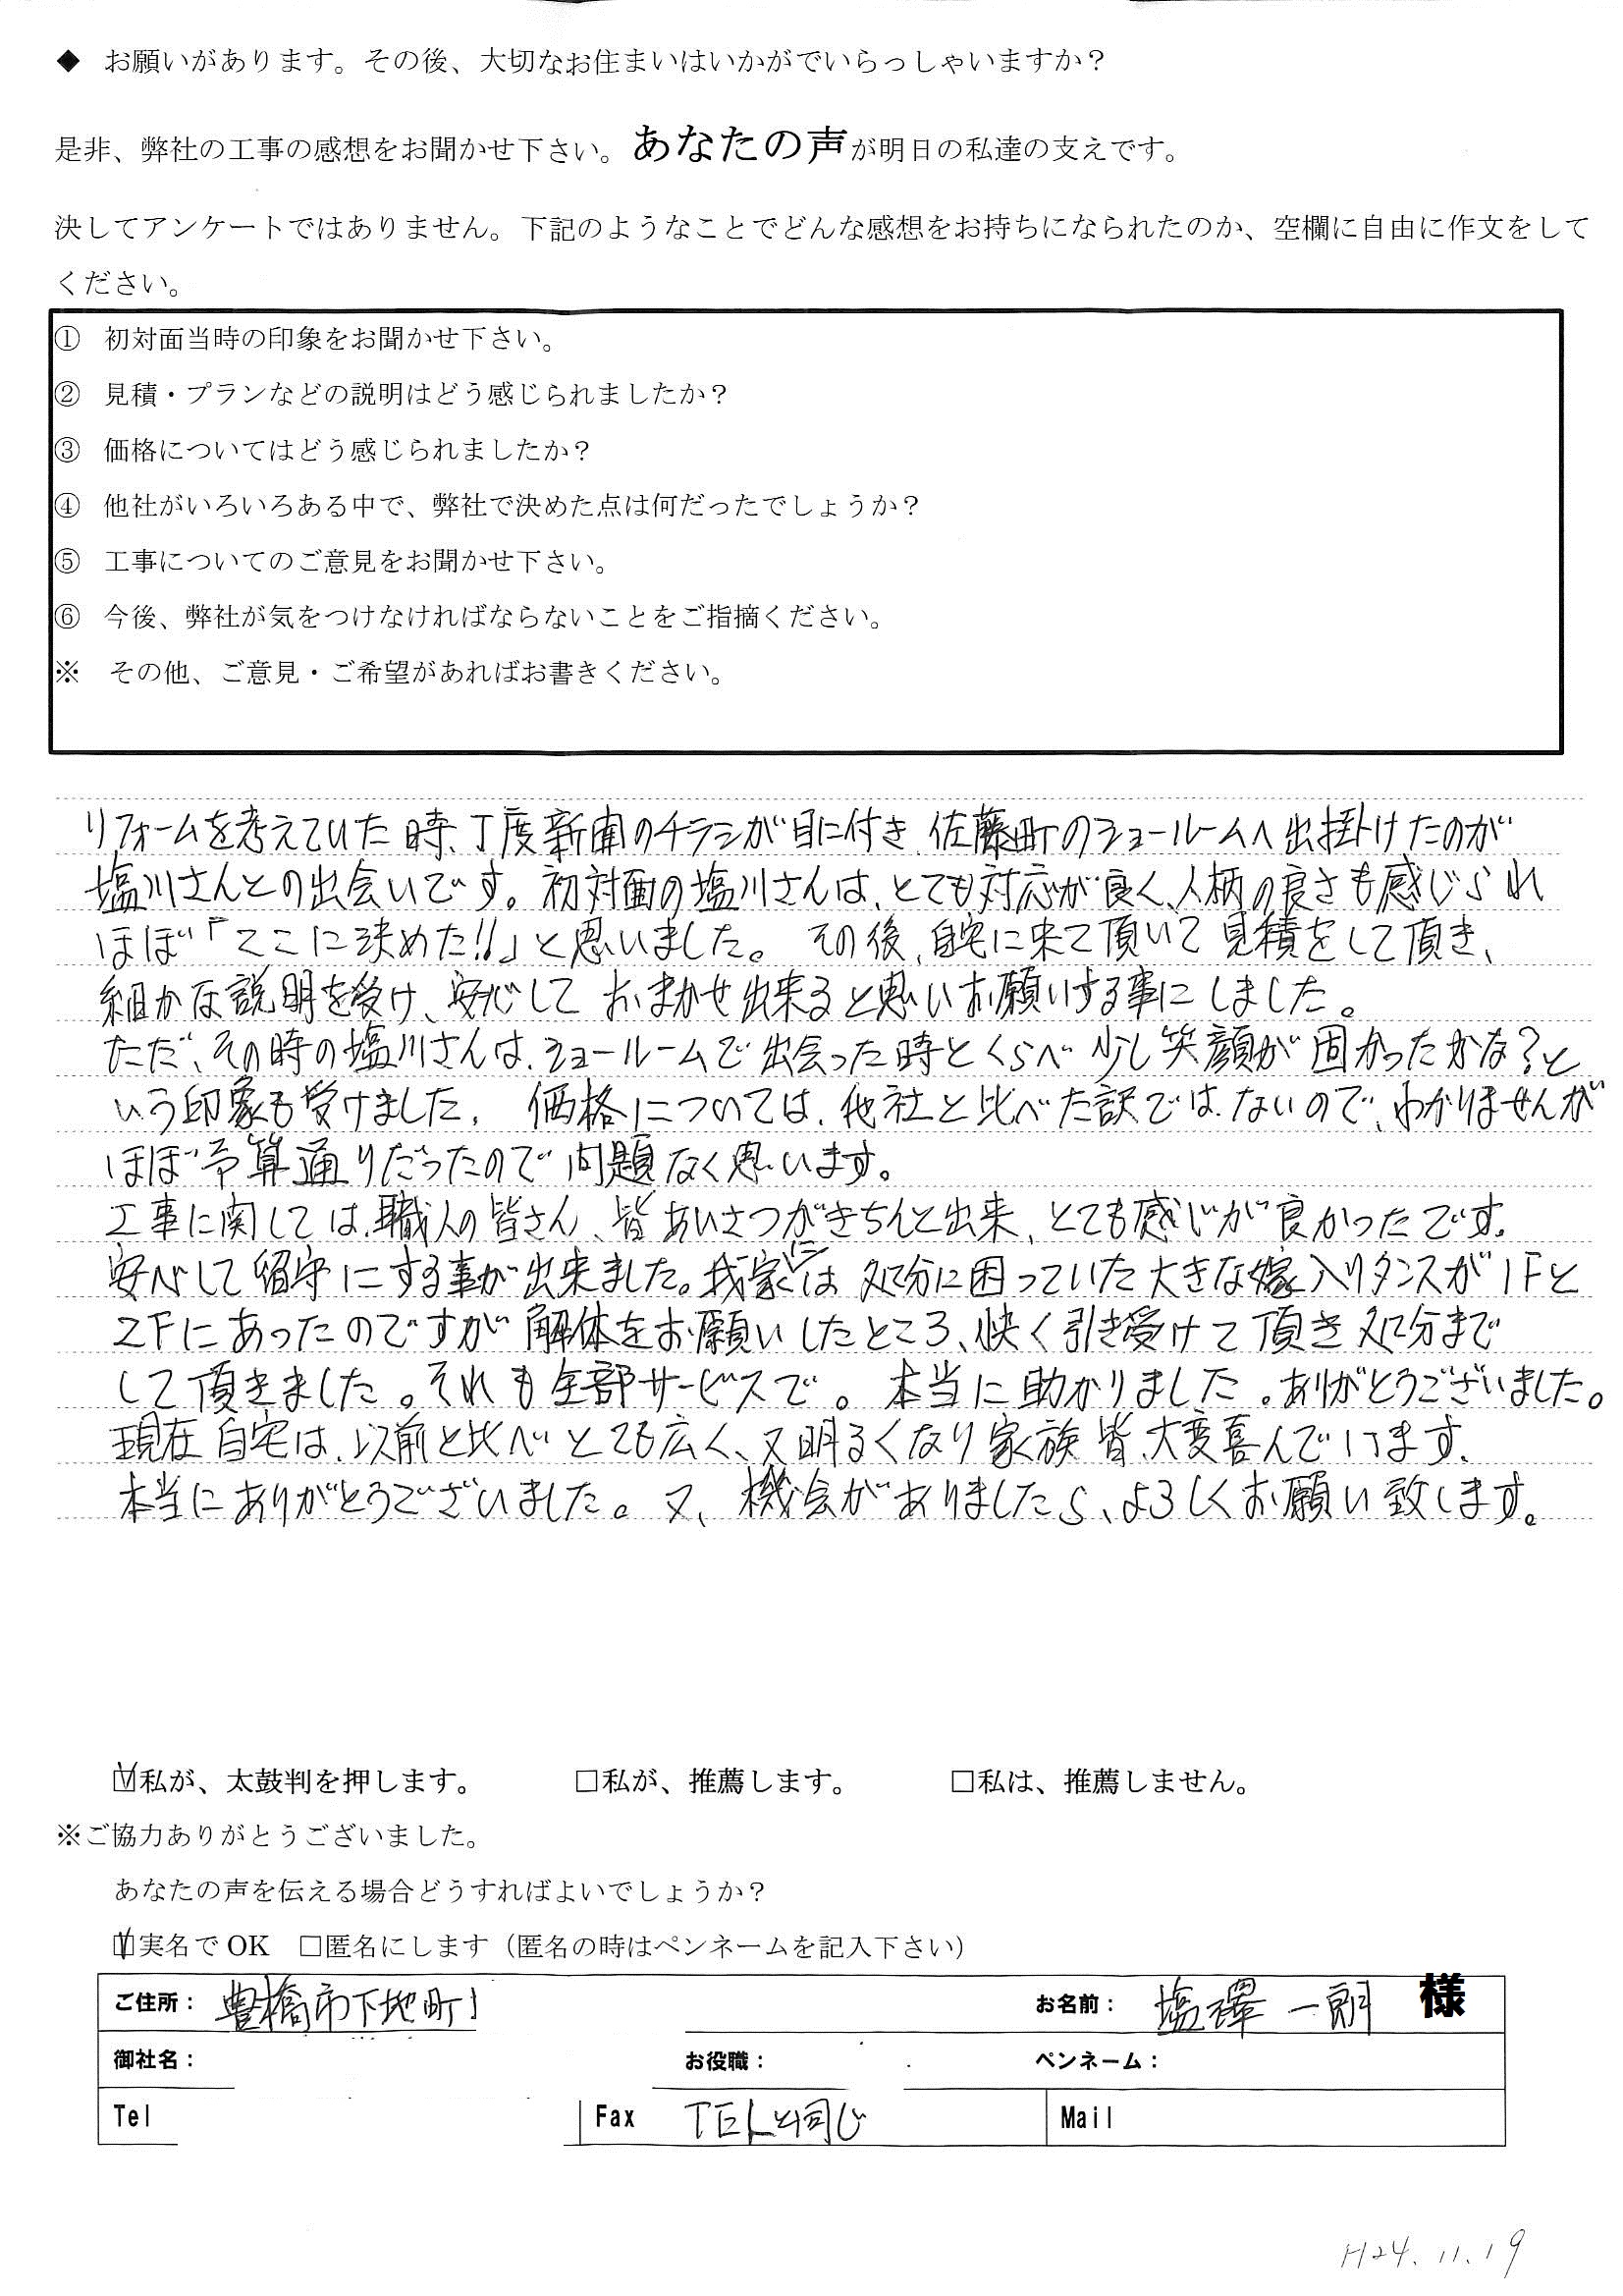 ◆ お願いがあります。その後、大切なお住まいはいかがでいらっしゃいますか？
是非、弊社の工事の感想をお聞かせ下さい。あなたの声が明日の私達の支えです。
決してアンケートではありません。下記のようなことでどんな感想をお持ちになられたのか、空欄に自由に作文をして
ください。
① 初対面当時の印象をお聞かせ下さい。
② 見積・プランなどの説明はどう感じられましたか？
③ 価格についてはどう感じられましたか？
④ 他社がいろいろある中で、弊社で決めた点は何だったでしょうか？
⑤ 工事についてのご意見をお聞かせ下さい。
⑥ 今後、弊社が気をつけなければならないことをご指摘ください。
※ その他、ご意見・ご希望があればお書きください。
リフォームを考えていた時、丁度新聞のチラシが目に付き、佐藤町のショールームへ出掛けたのが
塩川さんとの出会いです。初対面の塩川さんは、とても対応が良く、人柄の良さも感じられ
ほぼ「ここに決めた!!」と思いました。その後、自宅に来て頂いて見積をして頂き、
細かな説明を受け、安心しておまかせ出来ると思いお願いする事にしました。
ただ、その時の塩川さんは、ショールームで出会った時とくらべ少し笑顔が固かったかな？と
いう印象も受けました。価格については、他社と比べた訳ではないので、わかりませんが
ほぼ予算通りだったので問題なく思います。
工事に関しては、職人の皆さん、皆あいさつがきちんと出来、とても感じが良かったです。
安心して留守にする事が出来ました。我家には処分に困っていた大きな嫁入りタンスが1Fと
2Fにあったのですが解体をお願いしたところ、快く引き受けて頂き処分まで
して頂きました。それも全部サービスで。本当に助かりました。ありがとうございました。
現在自宅は、以前と比べとても広く、又明るくなり家族皆、大変喜んでいます。
本当にありがとうございました。又、機会がありましたら、よろしくお願い致します。
☑私が、太鼓判を押します。 □私が、推薦します。 □私は、推薦しません。
※ご協力ありがとうございました。
あなたの声を伝える場合どうすればよいでしょうか？
☑実名でOK □匿名にします（匿名の時はペンネームを記入下さい）
ご住所： 豊橋市下地町 お名前： 塩澤 一朗 様
御社名： お役職： ペンネーム：
Tel Fax TELと同じ Mail
H24.11.19